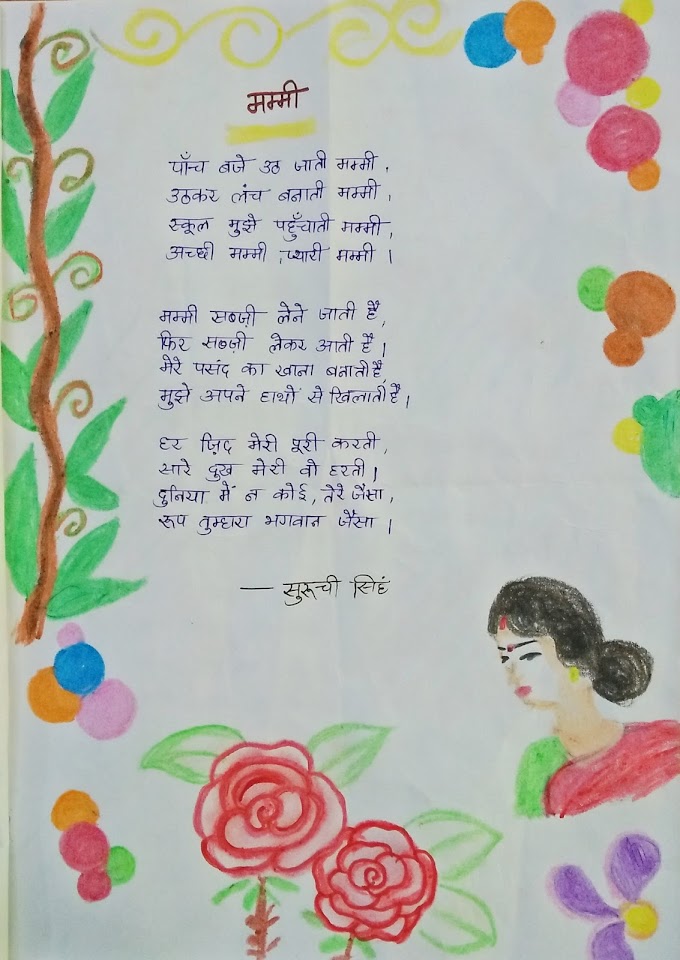 मम्मी
पाँच बजे उठ जाती मम्मी,
उठकर लंच बनाती मम्मी,
स्कूल मुझे पहुँचाती मम्मी,
अच्छी मम्मी, प्यारी मम्मी।
मम्मी सब्ज़ी लेने जाती है,
फिर सब्ज़ी लेकर आती है।
मेरे पसंद का खाना बनाती है,
मुझे अपने हाथों से खिलाती है।
हर ज़िद मेरी पूरी करती,
सारे दुख मेरी वो हरती।
दुनिया में न कोई, तेरे जैसा,
रूप तुम्हारा भगवान जैसा।
— सुरूची सिंह